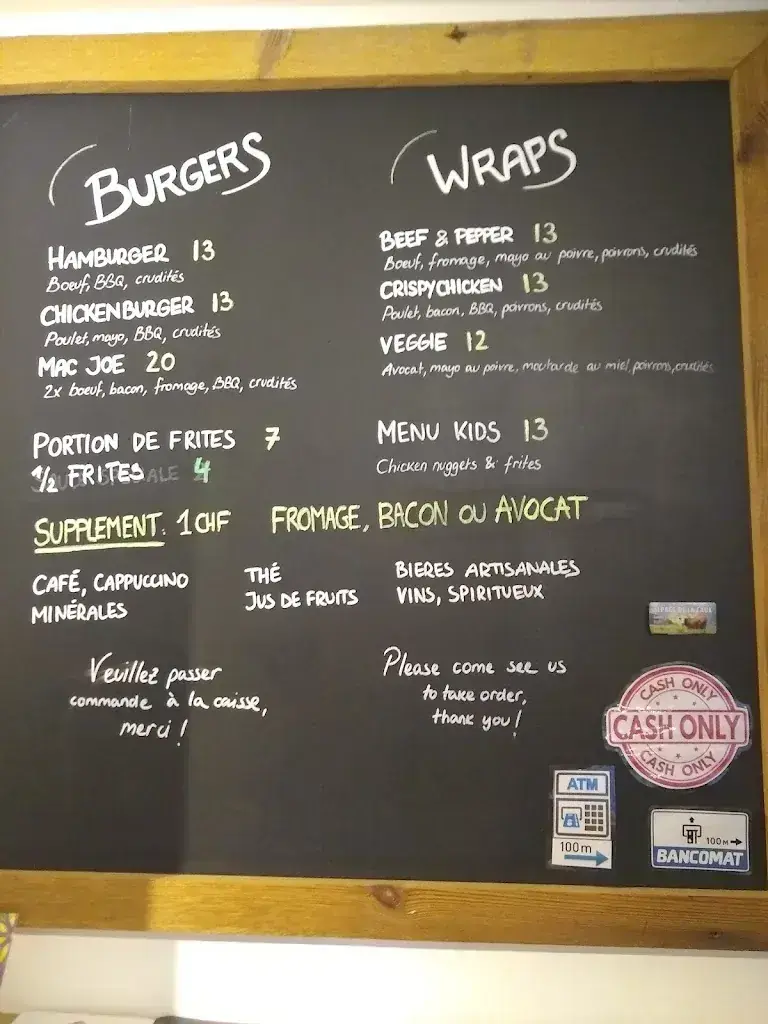 BURGERS
HAMBURGER 13
Boeuf, BBQ, crudités
CHICKENBURGER 13
Poulet, mayo, BBQ, crudités
MAC JOE 20
2x boeuf, bacon, fromage, BBQ, crudités
PORTION DE FRITES 7
1/2 FRITES 4
WRAPS
BEEF & PEPPER 13
Boeuf, fromage, mayo au poivre, poivrons, crudités
CRISPYCHICKEN 13
Poulet, bacon, BBQ, poivrons, crudités
VEGGIE 12
Avocat, mayo au poivre, moutarde au miel, poivrons, crudités
MENU KIDS 13
Chicken nuggets & frites
SUPPLEMENT: 1CHF FROMAGE, BACON OU AVOCAT
CAFÉ, CAPPUCCINO
MINÉRALES
THÉ
JUS DE FRUITS
BIERES ARTISANALES
VINS, SPIRITUEUX
Veuillez passer
commande à la caisse,
merci!
Please come see us
to take order,
thank you!
CASH ONLY
CASH ONLY
CASH ONLY
ATM
100m
100M
BANCOMAT